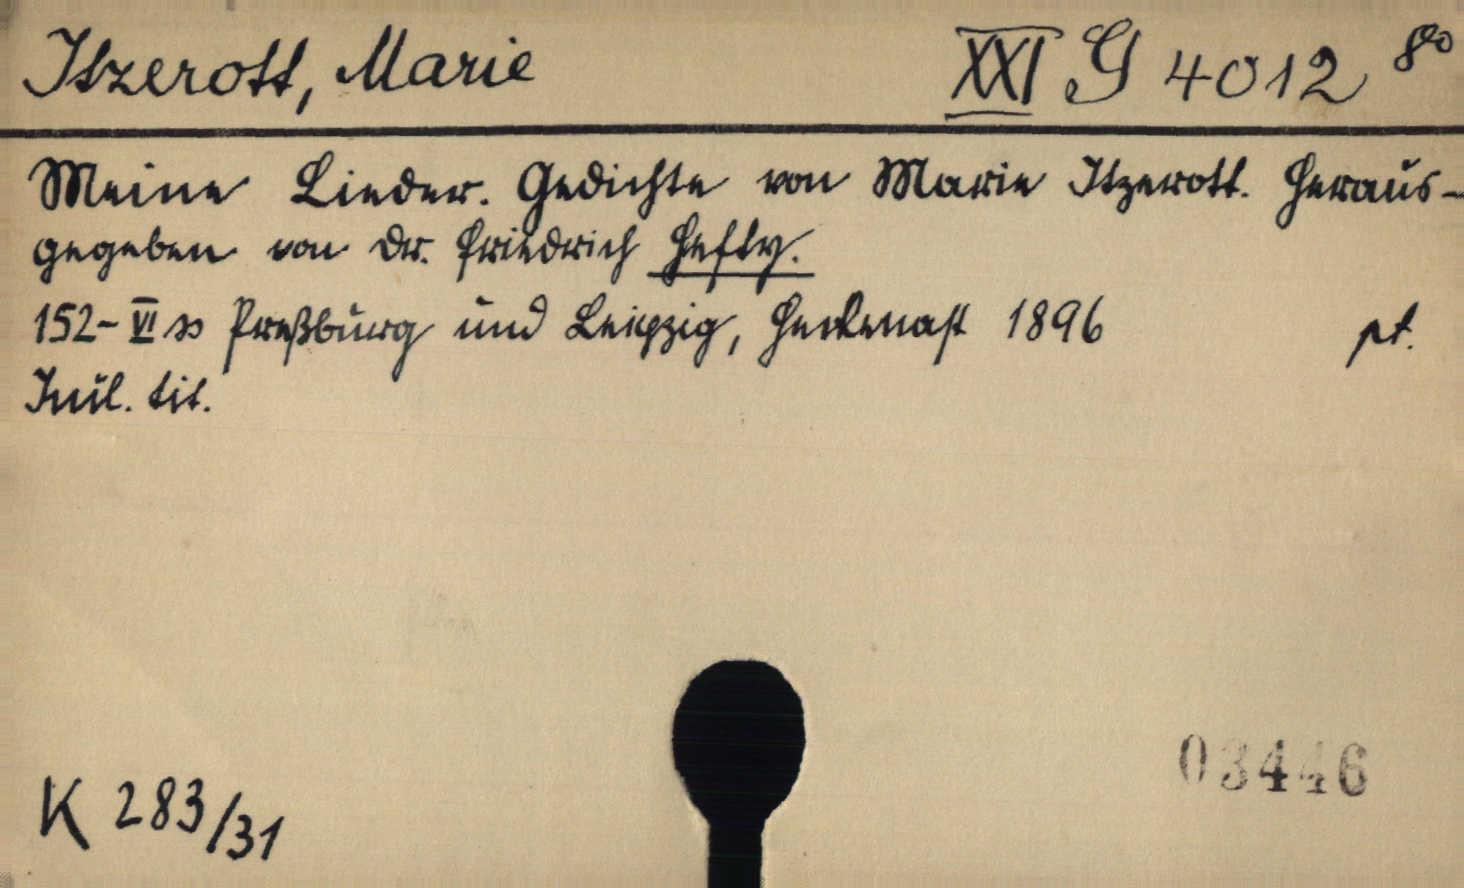 Itzerott, Marie XXI G 4012 8vo
Meine Lieder. Gedichte von Marie Itzerott. Heraus-
gegeben von Dr. Friedrich Hefty.
152-VI ss Preßburg und Leipzig, Heckenast 1896 pt.
tit.
03446
K 283/31